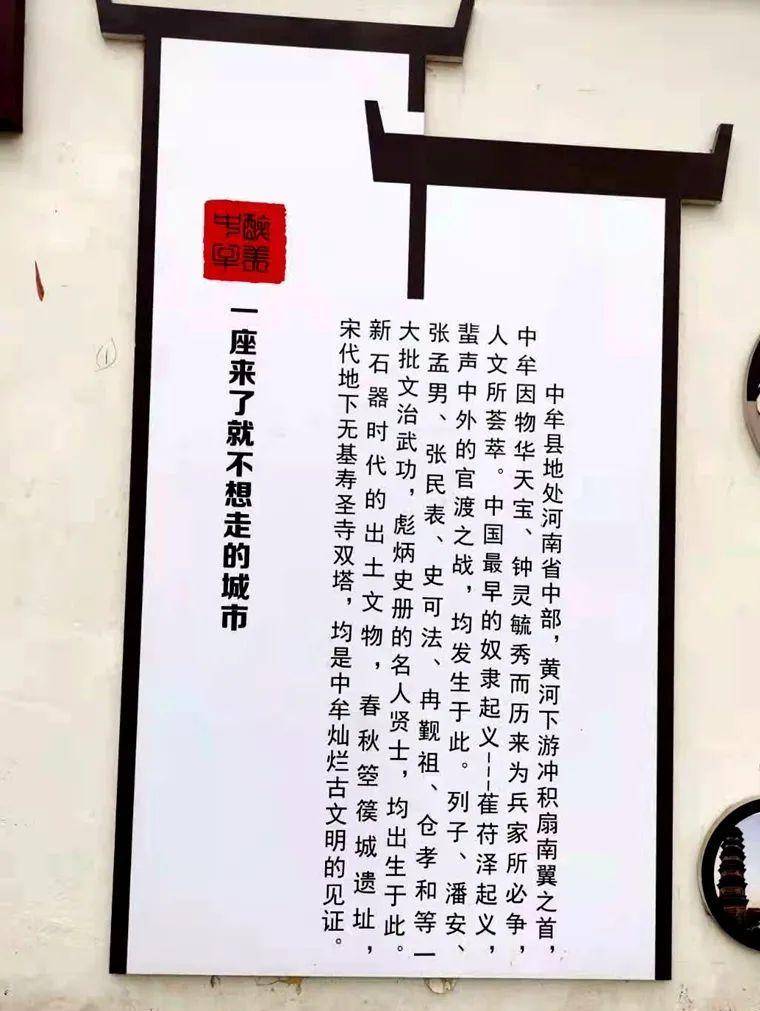 中牟县地处河南省中部，黄河下游冲积扇南翼之首，
中牟因物华天宝、钟灵毓秀而历来为兵家所必争，
人文所荟萃。中国最早的奴隶起义---萑苻泽起义，
蜚声中外的官渡之战，均发生于此。列子、潘安、
张孟男、张民表、史可法、冉觐祖、仓孝和等一
大批文治武功，彪炳史册的名人贤士，均出生于此。
新石器时代的出土文物，春秋箜篌城遗址，
宋代地下无基寿圣寺双塔，均是中牟灿烂古文明的见证。
醉美
中牟
一座来了就不想走的城市